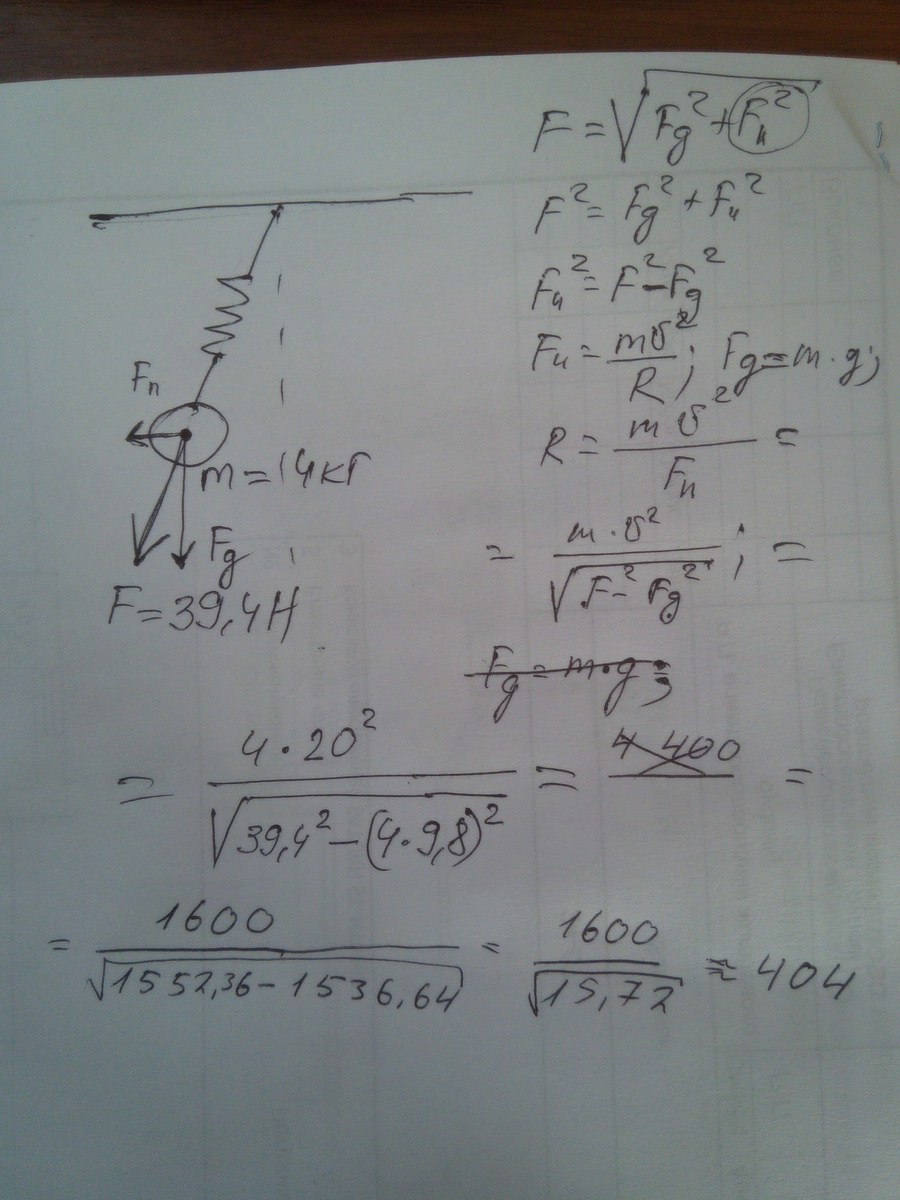 F = √(Fg² + Fц²)
F² = Fg² + Fц²
Fц² = F² − Fg²
Fц = mv²/R; Fg = m·g;
R = mv²/Fц =
= m·v²/√(F² − Fg²); =
Fg = m·g;
Fц
m = 4кг
Fg
F = 39,4Н
= 4·20²/√(39,4² − (4·9,8)²) = 4 400 =
= 1600/√(1552,36 − 1536,64) = 1600/√(15,72) ≈ 404